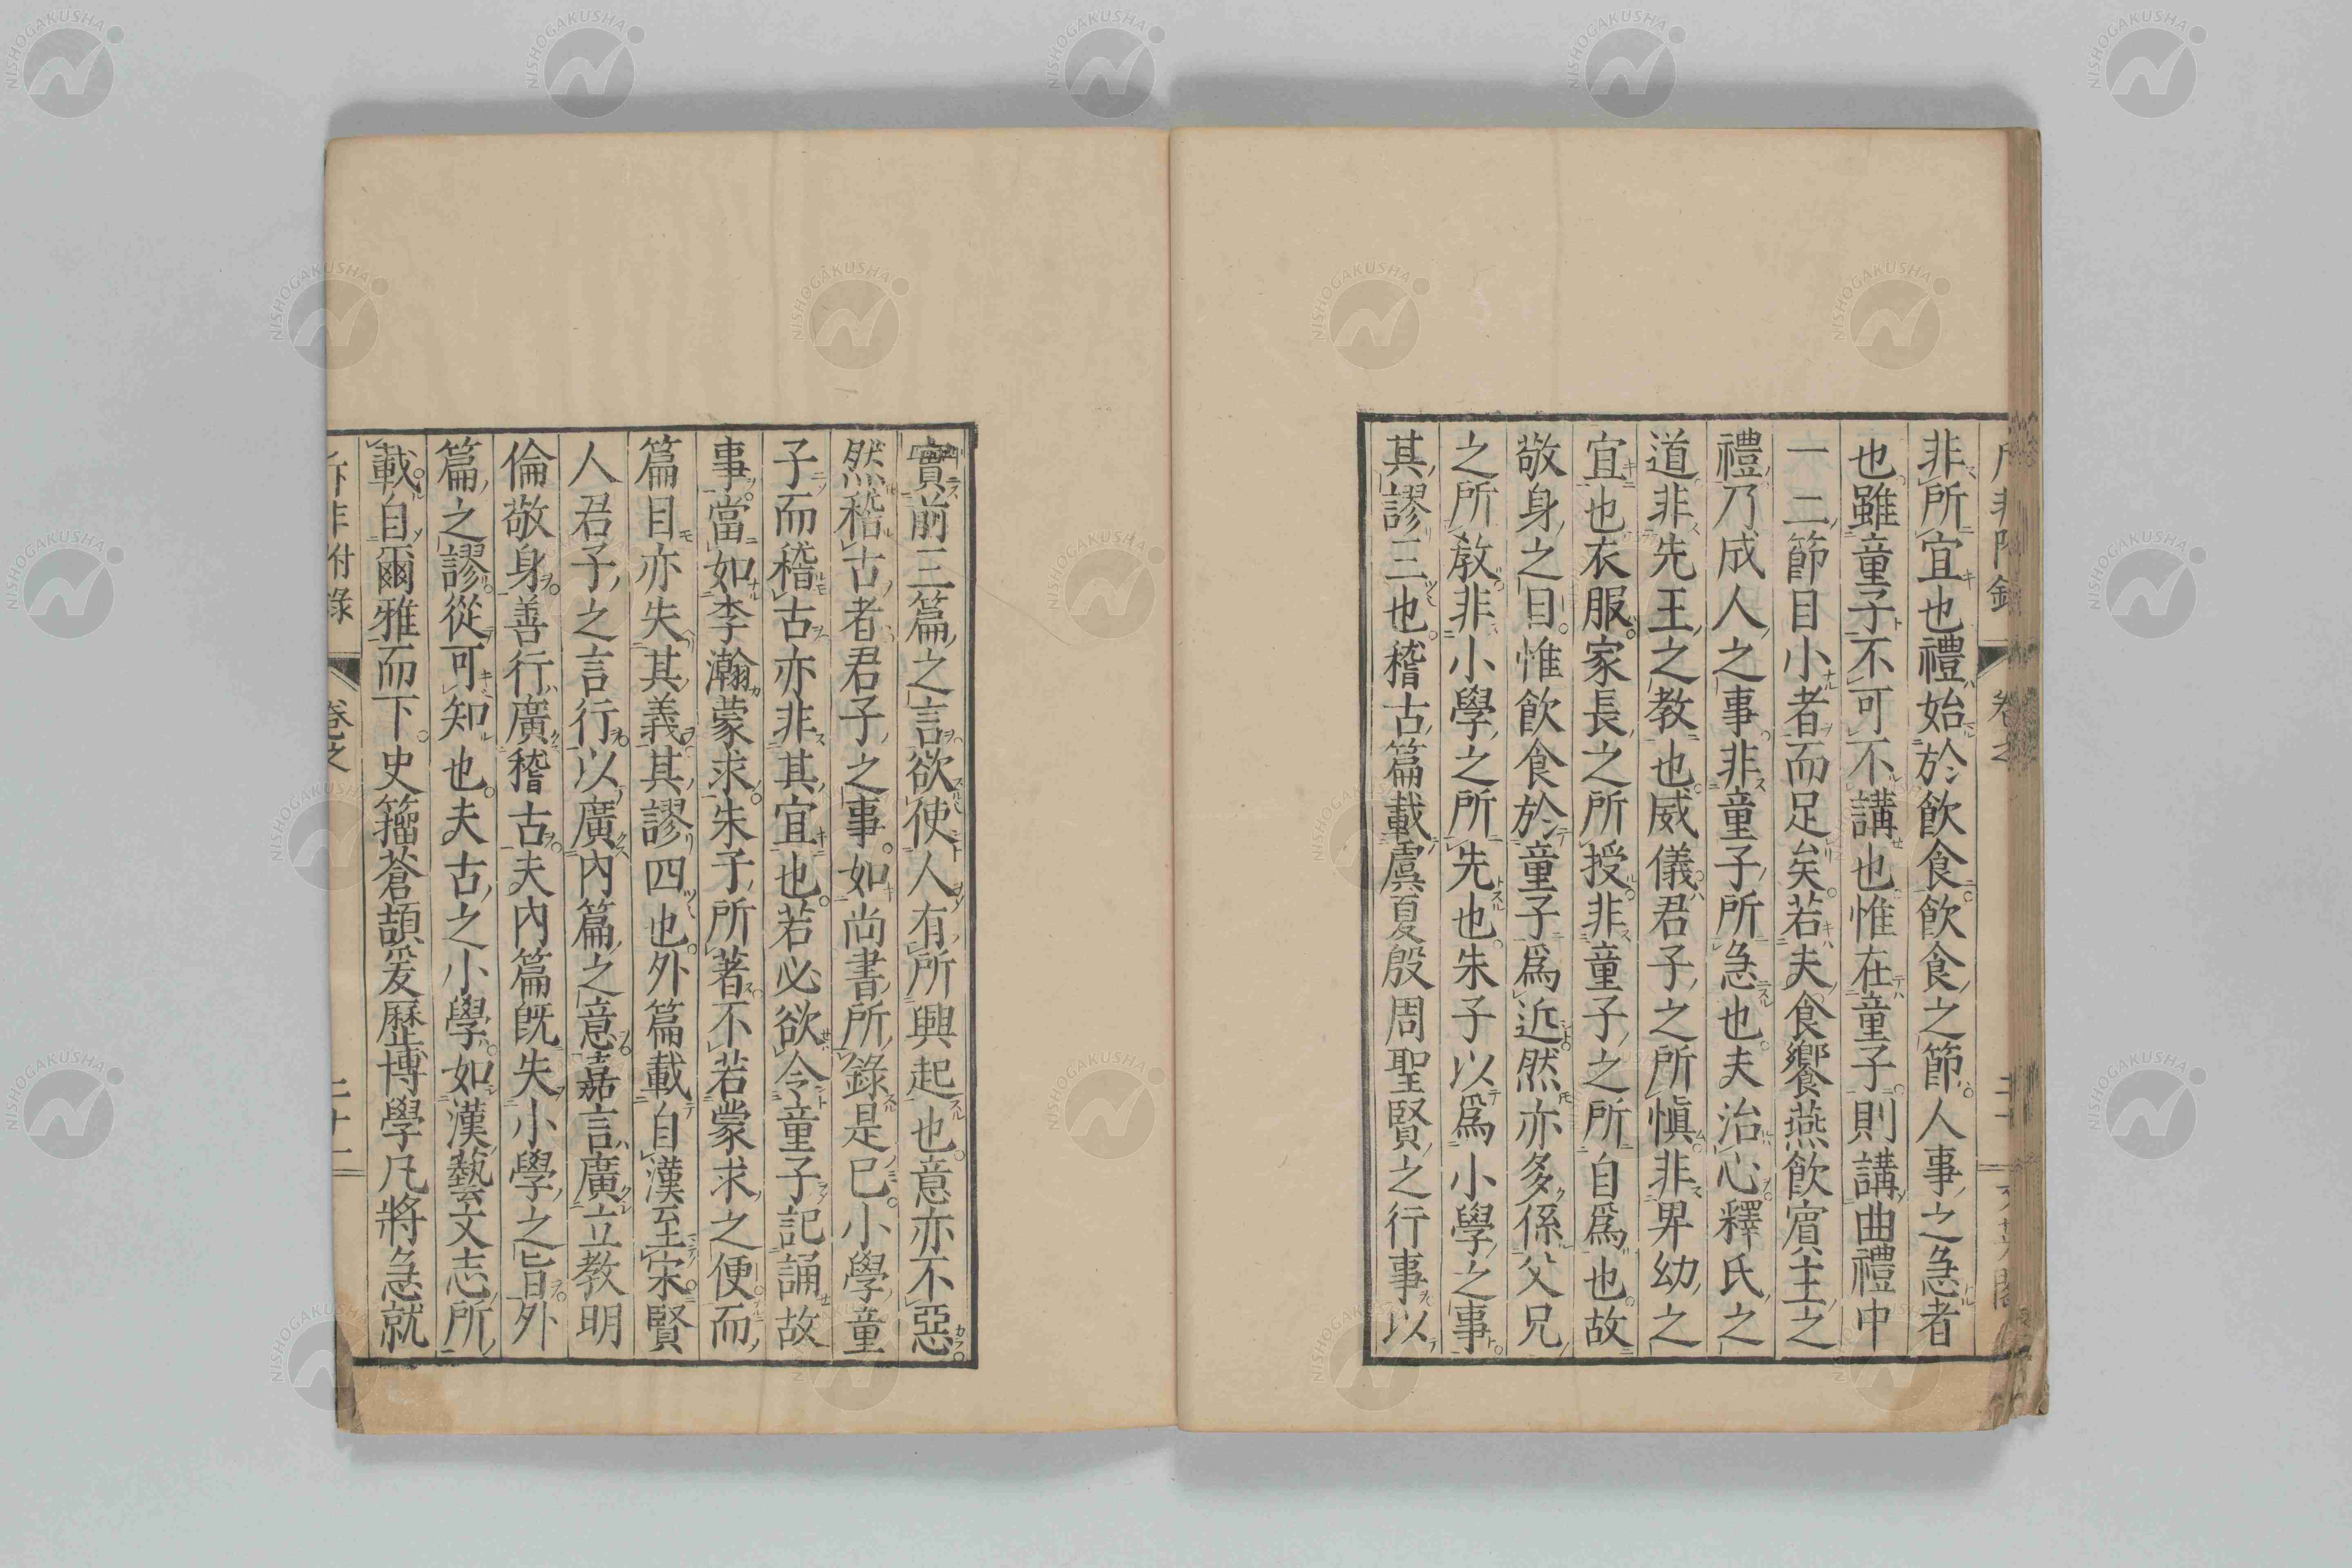 非所宜也禮始於飲食飲食之節人事之急者
也雖童子不可不講也惟在童子則講曲禮中
一二節目小者而足矣若夫食饗燕飲賓主之
禮乃成人之事非童子所急也夫治心釋氏之
道非先王之教也威儀君子之所愼非畀幼之
宜也衣服家長之所授非童子之所自爲也故
敬身之目惟飲食於童子爲近然亦多係父兄
之所教非小學之所先也朱子以爲小學之事
其謬三也稽古篇載虞夏殷周聖賢之行事以
實前三篇之言欲使人有所興起也意亦不惡
然稽古者君子之事如尚書所錄是已小學童
子而稽古亦非其宜也若必欲令童子記誦故
事當如李瀚蒙求朱子所著不若蒙求之便而
篇目亦失其義其謬四也外篇載自漢至宋賢
人君子之言行以廣內篇之意嘉言廣立教明
倫敬身善行廣稽古夫內篇旣失小學之旨外
篇之謬從可知也夫古之小學如漢藝文志所
載自爾雅而下史籀蒼頡爰歷博學凡將急就
非附錄
卷之
二十一
NISHOGAKUSHA